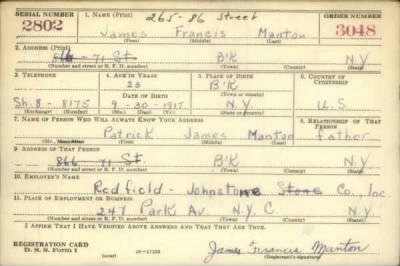 SERIAL NUMBER 1. NAME (Print) 265-86 Street ORDER NUMBER
2802 James Francis Manton 3048
(First) (Middle) (Last)
2. ADDRESS (Print)
71 St. B'K N.Y.
(Number and street or R. F. D. number) (Town) (County) (State)
3. TELEPHONE 4. AGE IN YEARS 5. PLACE OF BIRTH 6. COUNTRY OF CITIZENSHIP
23 B'K
DATE OF BIRTH (Town or county)
Sh. 8-8175 9-30-1917 N.Y. U.S.
(Exchange) (Number) (Mo.) (Day) (Yr.) (State or country)
7. NAME OF PERSON WHO WILL ALWAYS KNOW YOUR ADDRESS 8. RELATIONSHIP OF THAT PERSON
Patrick James Manton father
(Mr., Mrs., Miss) (First) (Middle) (Last)
9. ADDRESS OF THAT PERSON
866 71 St. B'K N.Y.
(Number and street or R. F. D. number) (Town) (County) (State)
10. EMPLOYER'S NAME
Redfield - Johnstone Stone Co., Inc.
11. PLACE OF EMPLOYMENT OR BUSINESS
247 Park Av. N.Y.C. N.Y.
(Number and street or R. F. D. number) (Town) (County) (State)
I AFFIRM THAT I HAVE VERIFIED ABOVE ANSWERS AND THAT THEY ARE TRUE.
REGISTRATION CARD
D. S. S. Form 1 (over) James Francis Manton
(Registrant's signature)